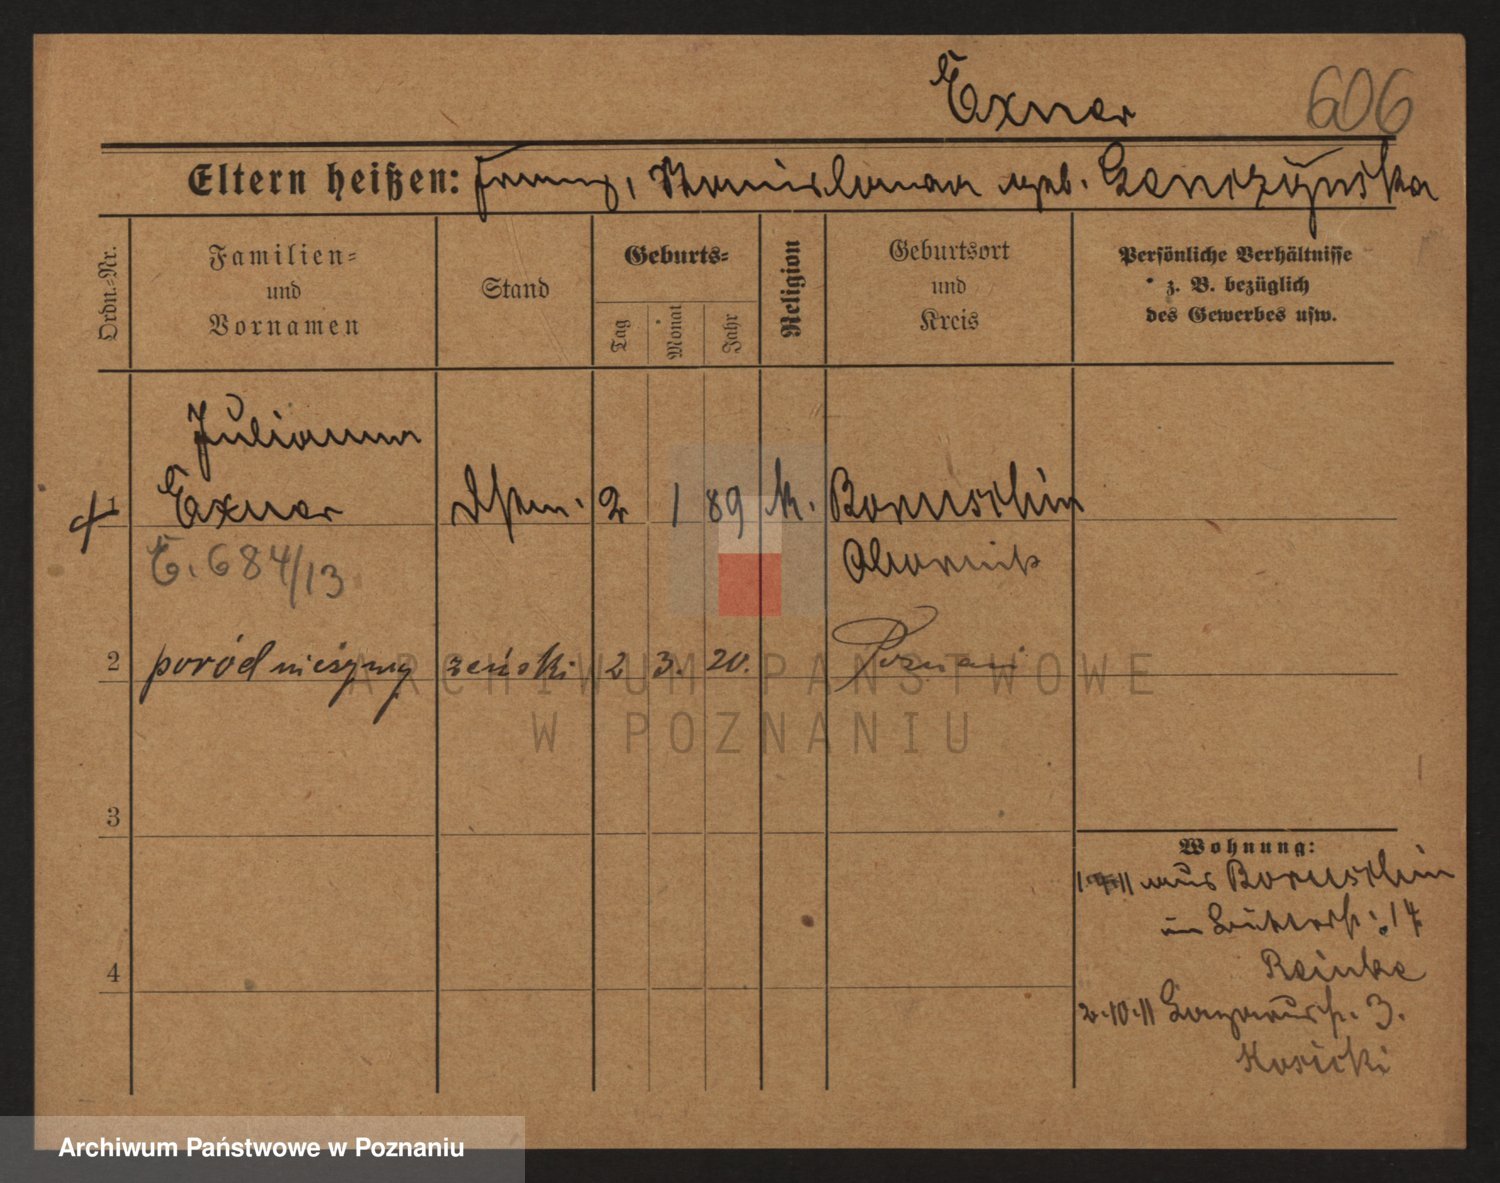 Exner 606
Eltern heißen: Franz, Stanislawa geb. Genczynska
Ordn.-Nr.
Familien-
und
Vornamen
Stand
Geburts-
Tag
Monat
Jahr
Religion
Geburtsort
und
Kreis
Persönliche Verhältnisse
z. B. bezüglich
des Gewerbes usw.
Julianna
1 Exner Dstm. 2 1 89 k. Boruschin
E. 684/13 Obornik
2 poród nieżywy żeński 2 3. 20. Poznań
3
4
Wohnung:
aus Boruschin
14
Reinke
2.10.11 Lazarusstr. 3.
Kosicki
ARCHIWUM PAŃSTWOWE
W POZNANIU
Archiwum Państwowe w Poznaniu